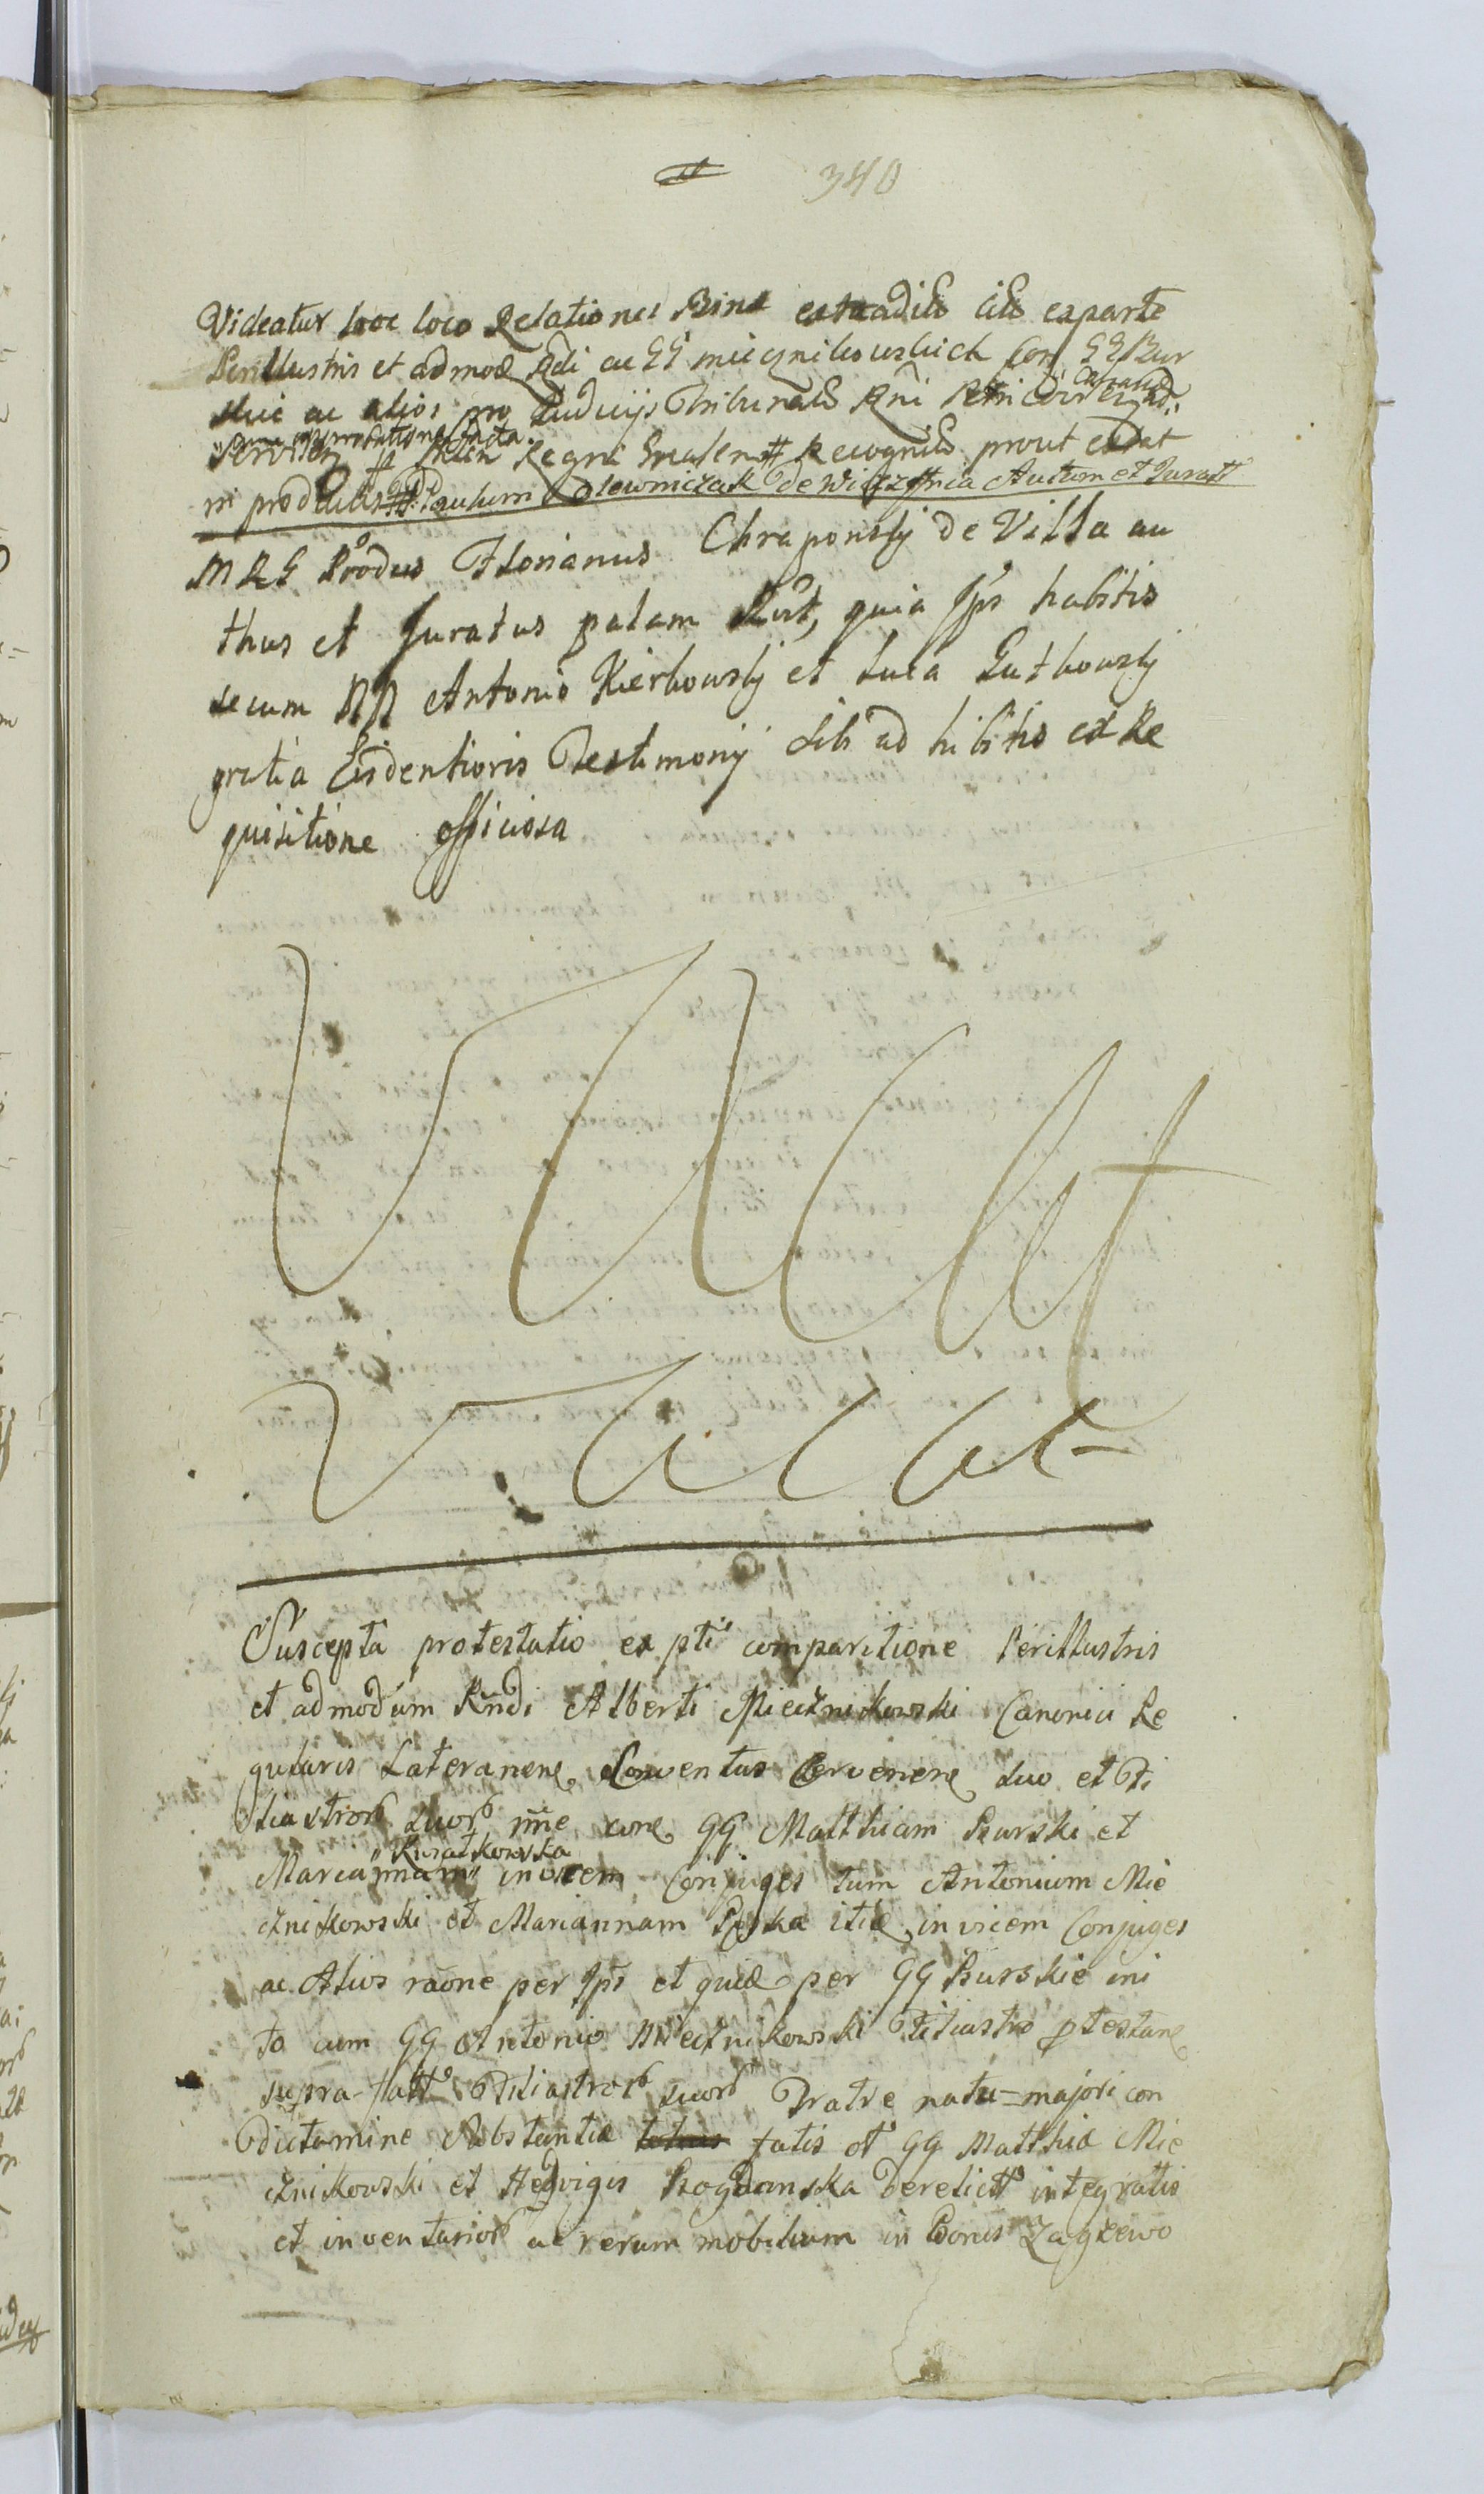 340
Videatur hoc loco Relationes Binæ extradit cit ex parte
Perillustris et admod Rdi ac GG miecznikowskich con GG Bur
skie ac alios pro Judicijs Tribunal Rni
Regni Recognit prout extat
in productis Paulum Olowniczak De Wieczfnia Authum et Juratt
MRG Produs Florianus Chraponsky de Villa au
thus et Juratus palam Rvit, quia Ips habitis
secum NN Antonio Kierkowsky et Luca Gutkowsky
gratia Evidentioris Testimonij sibi ad hibitis ex Re
quisitione officiosa
Vacat
Vacat
Suscepta protestatio ex pti comparitione Perillustris
et admodum Rndi Alberti Miecznikowski Canonici Re
gularis Lateranen Conventus Cervenen suo et Fi
liastror suor nne con GG Matthiam Burski et
Kwiatkowska
Mariannam invicem Conjuges tum Antonium Mie
cznikowski et Mariannam itid invicem Conjuges
ac Alios raone per Ips et quid per GG Burskie ini
to cum GG Antonio Miecznikowski Filiastro ptestan
supra fatt Filiastror suor Fratre natu=majori con
dictamine Substantiæ fatis ol GG Matthiæ Mie
cznikowski et Hedvigis Bogdanska derelict integratis
et inventarior ac rerum mobilium in Bonis Zagrzewo